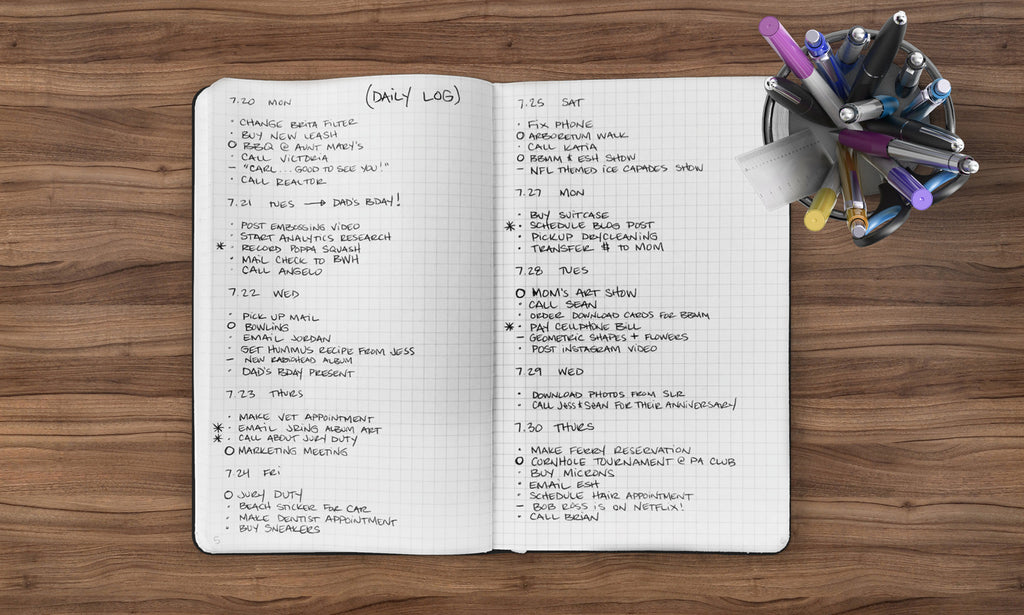 7.20 MON (DAILY LOG)
· CHANGE BRITA FILTER
· BUY NEW LEASH
O BBQ @ AUNT MARY'S
· CALL VICTORIA
– "CARL...GOOD TO SEE YOU!"
· CALL REALTOR
7.21 TUES → DAD'S BDAY!
· POST EMBOSSING VIDEO
· START ANALYTICS RESEARCH
* · RECORD POPPA SQUASH
· MAIL CHECK TO BWH
· CALL ANGELO
7.22 WED
· PICK UP MAIL
O BOWLING
· EMAIL JORDAN
· GET HUMMUS RECIPE FROM JESS
– NEW RADIOHEAD ALBUM
· DAD'S BDAY PRESENT
7.23 THURS
· MAKE VET APPOINTMENT
* · EMAIL JRING ALBUM ART
* · CALL ABOUT JURY DUTY
O MARKETING MEETING
7.24 FRI
O JURY DUTY
· BEACH STICKER FOR CAR
· MAKE DENTIST APPOINTMENT
· BUY SNEAKERS
5
7.25 SAT
· FIX PHONE
O ARBORETUM WALK
· CALL KATIA
O BBMM & ESH SHOW
– NFL THEMED ICE CAPADES SHOW
7.27 MON
· BUY SUITCASE
* · SCHEDULE BLOG POST
· PICKUP DRYCLEANING
· TRANSFER $ TO MOM
7.28 TUES
O MOM'S ART SHOW
· CALL SEAN
· ORDER DOWNLOAD CARDS FOR BBMM
* · PAY CELLPHONE BILL
– GEOMETRIC SHAPES + FLOWERS
· POST INSTAGRAM VIDEO
7.29 WED
· DOWNLOAD PHOTOS FROM SLR
· CALL JESS & SEAN FOR THEIR ANNIVERSARY
7.30 THURS
· MAKE FERRY RESERVATION
O CORNHOLE TOURNAMENT @ PA CLUB
· BUY MICRONS
· EMAIL ESH
· SCHEDULE HAIR APPOINTMENT
– BOB ROSS IS ON NETFLIX!
· CALL BRIAN